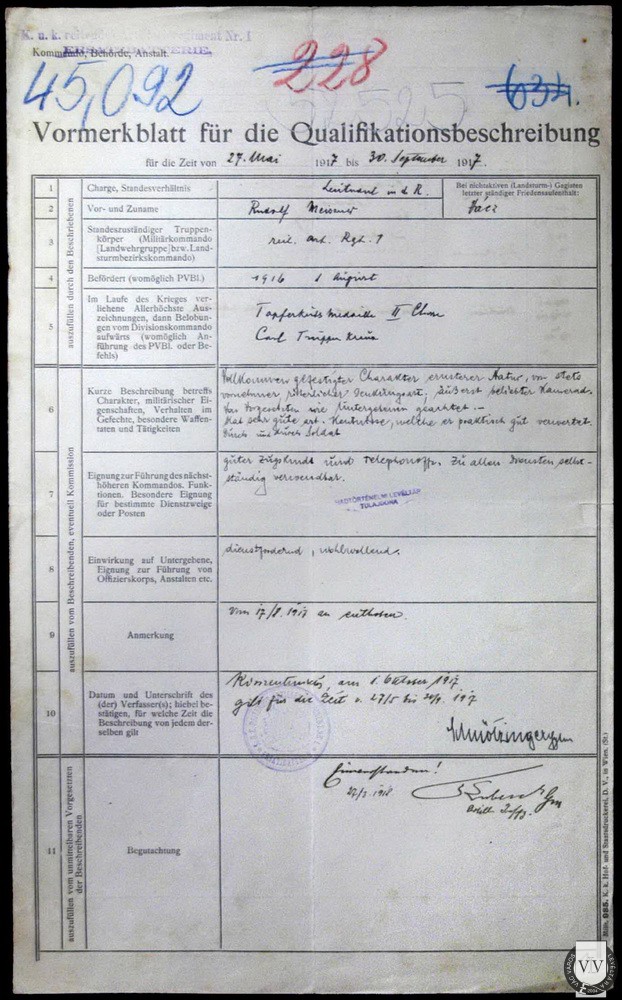 K. u. k. reitendes Artillerieregiment Nr. 1
ERSATZBATTERIE.
Kommando, Behörde, Anstalt.
45,092
228
634.
Vormerkblatt für die Qualifikationsbeschreibung
für die Zeit von 27. Mai 1917 bis 30. September 1917.
auszufüllen durch den Beschriebenen
1 Charge, Standesverhältnis Leutnant in d R.
Bei nichtaktiven (Landsturm-) Gagisten
letzter ständiger Friedensaufenthalt:
2 Vor- und Zuname Rudolf
Vácz
3 Standeszuständiger Truppen-
körper (Militärkommando
[Landwehrgruppe] bzw. Land-
sturmbezirkskommando)
reit. Art. Rgt. 1
4 Befördert (womöglich PVBl.) 1916 1 August
5 Im Laufe des Krieges ver-
liehene Allerhöchste Aus-
zeichnungen, dann Belobungen
vom Divisionskommando
aufwärts (womöglich An-
führung des PVBl. oder Be-
fehls)
Tapferkeits Medaille II Classe
Carl Truppen Kreuz
auszufüllen vom Beschreibenden, eventuell Kommission
6 Kurze Beschreibung betreffs
Charakter, militärischer Ei-
genschaften, Verhalten im
Gefechte, besondere Waffen-
taten und Tätigkeiten
Vollkommen gefestigter Charakter ernsterer Natur, von stets
vornehmer, ritterlicher Denkungsart, äußerst beliebter Kamerad.
Von Vorgesetzten wie Untergebenen geachtet.-
Hat sehr gute art. Kenntnisse, welche er praktisch gut verwertet.
Durch und durch Soldat
7 Eignung zur Führung des nächst-
höheren Kommandos. Funk-
tionen. Besondere Eignung
für bestimmte Dienstzweige
oder Posten
guter Zugskmdt und Telephonoffz. Zu allen Diensten selbst-
ständig verwendbar.
HADTÖRTÉNELMI LEVÉLTÁR
TULAJDONA
8 Einwirkung auf Untergebene,
Eignung zur Führung von
Offizierskorps, Anstalten etc.
dienstfordernd, wohlwollend.
9 Anmerkung
vom 17/8. 1917 an enthoben.
10 Datum und Unterschrift des
(der) Verfasser(s); hiebei be-
stätigen, für welche Zeit die
Beschreibung von jedem der-
selben gilt
am 1. Oktober 1917
gilt für die Zeit v. 27/5 bis 30/9. 1917
auszufüllen vom unmittelbaren Vorgesetzten
der Beschreibenden
11 Begutachtung
Einverstanden!
1918
Milit. 985. K. k. Hof- und Staatsdruckerei, D. V., in Wien. (St.)
VÁC VÁROS LEVÉLTÁRA